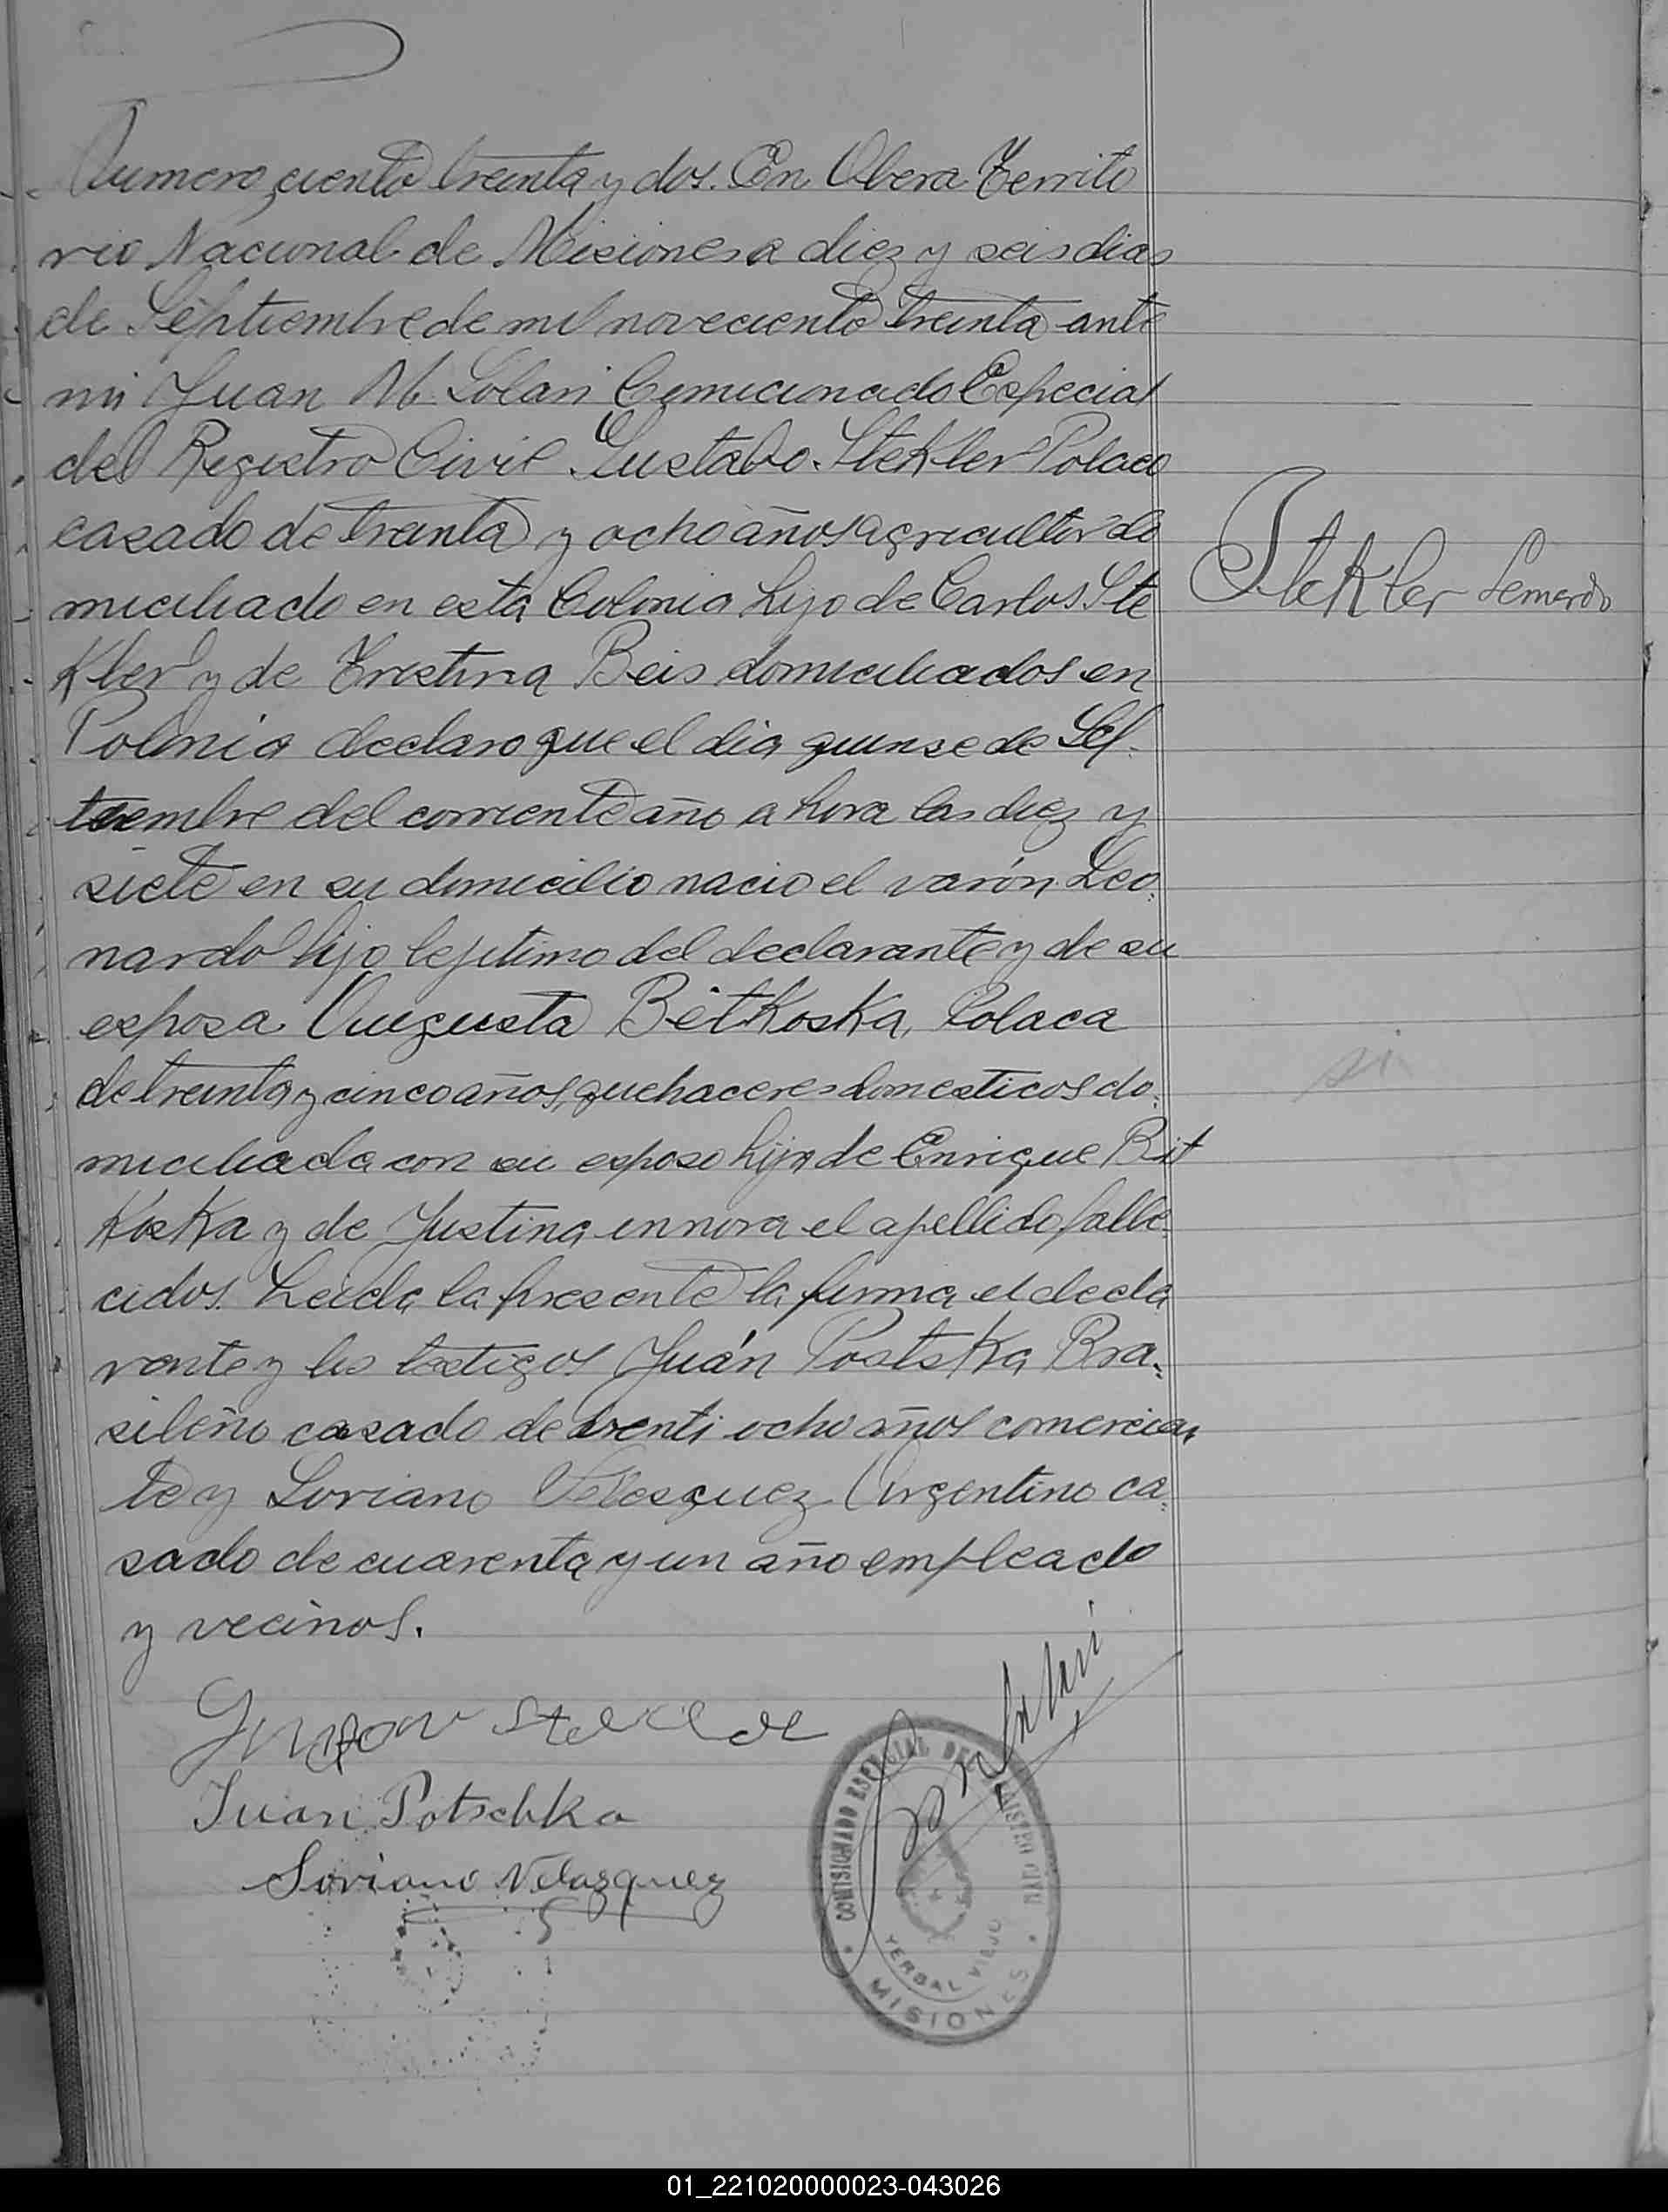 Numero ciento treinta y dos. En Obera Territo
rio Nacional de Misiones a diez y seis dias
de Septiembre de mil noveciento treinta ante
mi Juan M. Solari Comicionado Especial
del Registro Civil Gustabo Stekler Polaco
casado de treinta y ocho años agricultor do
miciliado en esta Colonia hijo de Carlos Ste
Kler y de Cristina Beis domiciliados en
Polonia declaro que el dia quinse de Sep-
tiembre del corriente año a hora las diez y
siete en su domicilio nacio el varón Leo=
nardo hijo lejitimo del declarante y de su
esposa Augusta Bétkoska, Polaca
de treinta y cinco años, quehaceres domesticos do=
miciliada con su esposo hija de Enrique Bit
Koska y de Justina innora el apellido falle=
cidos. Leida la presente la firma el decla
rante y los testigos Juán Postska Bra=
sileño casado de venti ocho años comercian
te y Soriano Velesquez Argentino ca=
sado de cuarenta y un año empleado
y vecinos.
Stekler Leonardo
si
Juan Potschka
Soriano Velazquez
COMISIONADO ESPECIAL DEL REGISTRO CIVIL
YERBAL VIEJO
MISIONES
01_221020000023-043026